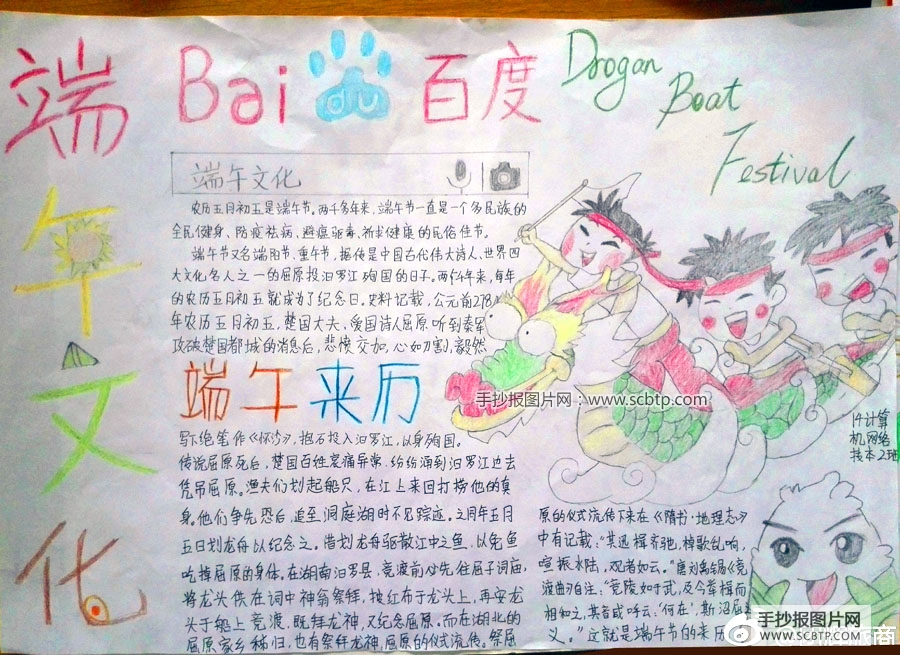 端午文化
Bai du 百度
Drogan
Boat
Festival
端午文化
农历五月初五是端午节。两千多年来，端午节一直是一个多民族的
全民健身、防疫祛病、避瘟驱毒、祈求健康的民俗佳节。
端午节又名端阳节、重午节，据传是中国古代伟大诗人、世界四
大文化名人之一的屈原投汨罗江殉国的日子。两仟年来，每年
的农历五月初五就成为了纪念日。史料记载，公元前278
年农历五月初五，楚国大夫、爱国诗人屈原听到秦军
攻破楚国都城的消息后，悲愤交加，心如刀割，毅然
端午来历
写下绝笔作《怀沙》，抱石投入汨罗江，以身殉国。
传说屈原死后，楚国百姓哀痛异常，纷纷涌到汨罗江边去
凭吊屈原。渔夫们划起船只，在江上来回打捞他的真
身。他们争先恐后，追至洞庭湖时不见踪迹。之后每年五月
五日划龙舟以纪念之。借划龙舟驱散江中之鱼，以免鱼
吃掉屈原的身体。在湖南汨罗县，竞渡前必先往屈子祠庙，
将龙头供在祠中神翕祭拜，披红布于龙头上，再安龙
头于船上竞渡，既拜龙神，又纪念屈原。而在湖北的
屈原家乡秭归，也有祭拜龙神，屈原的仪式流传。祭屈
原的仪式流传下来在《隋书·地理志》
中有记载："其迅楫齐驰，棹歌乱响，
喧振水陆，观者如云。"唐刘禹锡《竞
渡曲》自注："竞陵如于武，及今举楫而
相和之，其音咸呼云：'何在'，斯沼屈
义。"这就是端午节的来历
14计算
机网络
技本2班
手抄报图片网：www.scbtp.com
手抄报图片网
WWW.SCBTP.COM